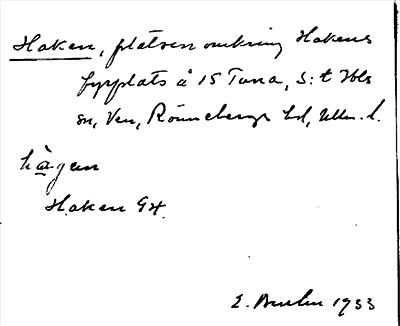 Haken, platsen omkring Hakens
fyrplats å 15 Tuna, S:t Ibbs
sn, Ven, Rönnebergs hd, Mlm. l.
hàgen
Haken GK
E. 1933